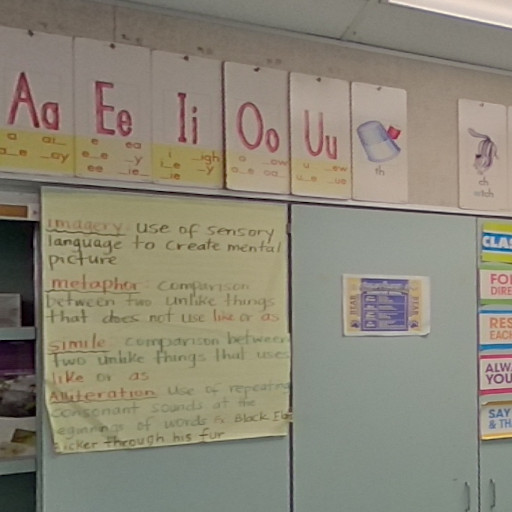 Aa
a ai_
a_e _ay
Ee
e ea
e_e _y
ee _ie_
Ii
i _igh
i_e _y
_ie
Oo
o _ow
o_e oa_
Uu
u _ew
u_e _ue
th
ch
imagery: use of sensory
language to create mental
picture
metaphor: comparison
between two unlike things
that does not use like or as
simile: comparison between
two unlike things that uses
like or as
Alliteration: use of repeating
consonant sounds at the
beginnings of words
through his fur
CLAS
FO
DIRE
RES
EACH
ALWA
YOU
SAY
& TH